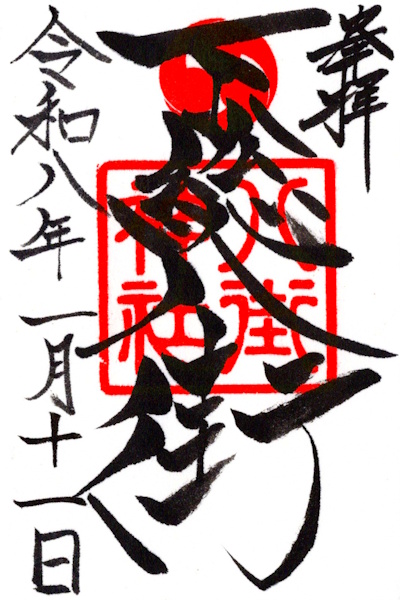 奉拝
下総八街
八街
神社
令和八年一月十一日